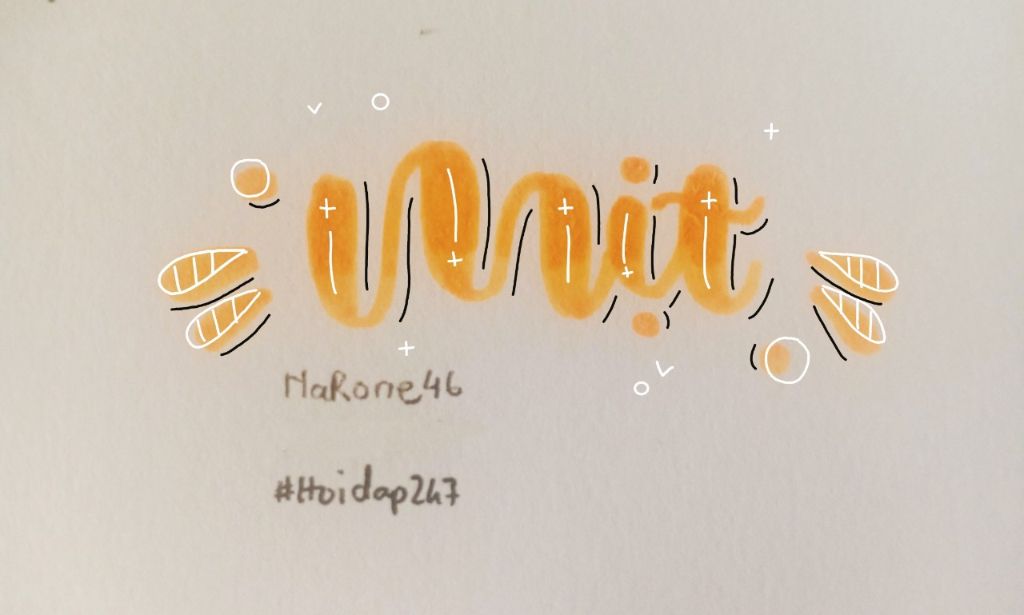 Mịt
NaRone46
#Hoidap247